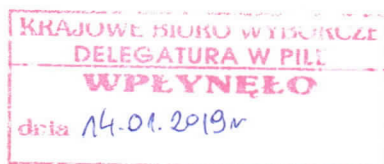 KRAJOWE BIURO WYBORCZE
DELEGATURA W PILE
WPŁYNĘŁO
dnia 14.01.2019r